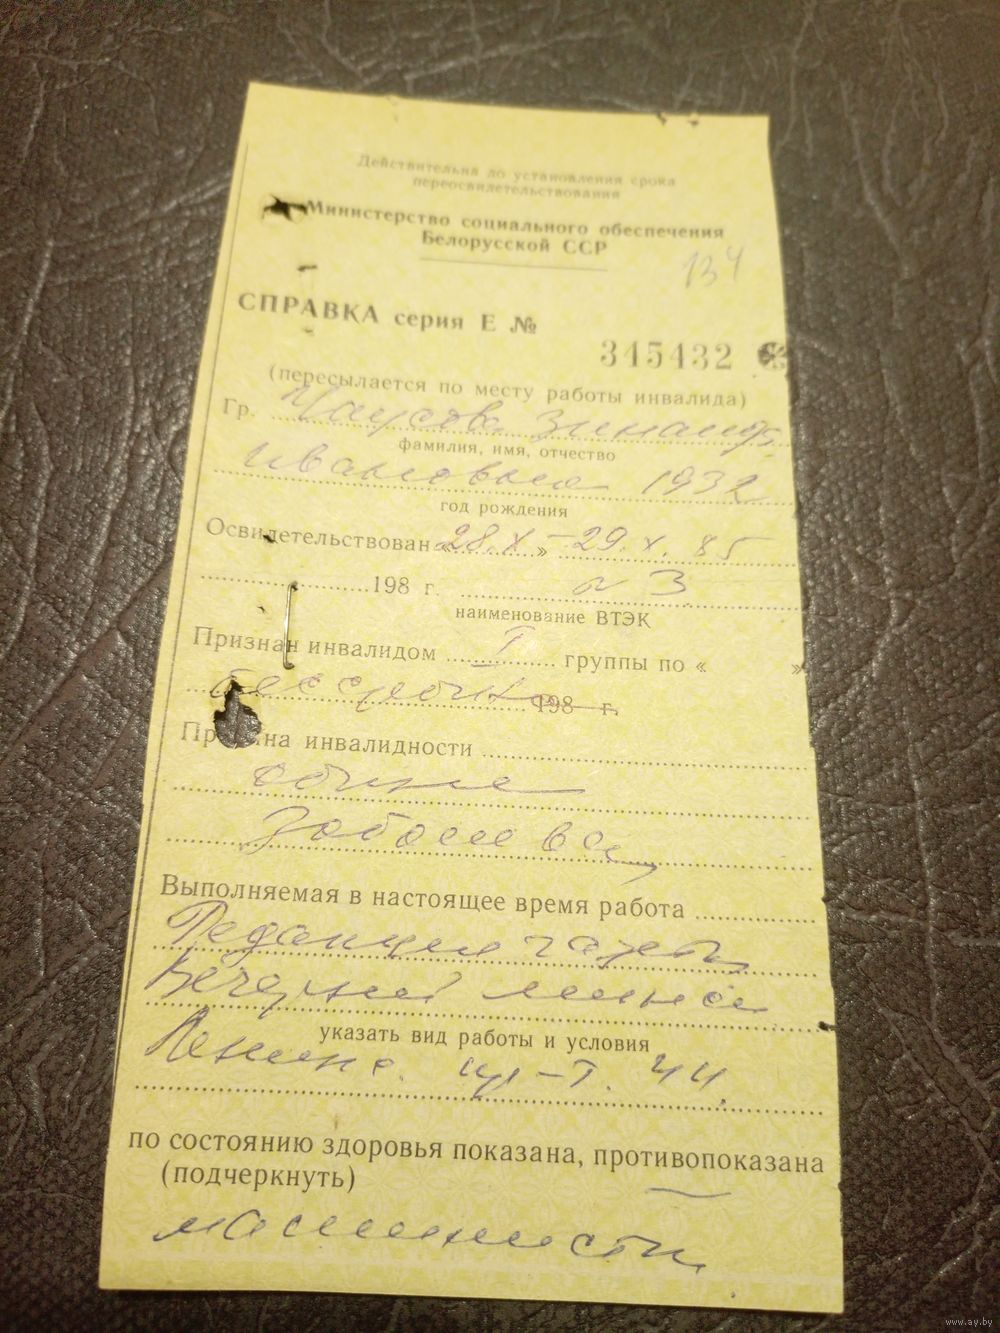 Действительна до установления срока
переосвидетельствования
Министерство социального обеспечения
Белорусской ССР
134
СПРАВКА серия Е №
345432
(пересылается по месту работы инвалида)
Гр. Чаусова Зинаида
фамилия, имя, отчество
Ивановна 1932
год рождения
Освидетельствован «28.X» - 29.X. 85
198 г. 3
наименование ВТЭК
Признан инвалидом I группы по « »
бессрочно 198 г.
Причина инвалидности
общее
заболевание
Выполняемая в настоящее время работа
Редакция газеты
Вечерний
указать вид работы и условия
Ленина. пр-т. 44.
по состоянию здоровья показана, противопоказана
(подчеркнуть)
www.ay.by